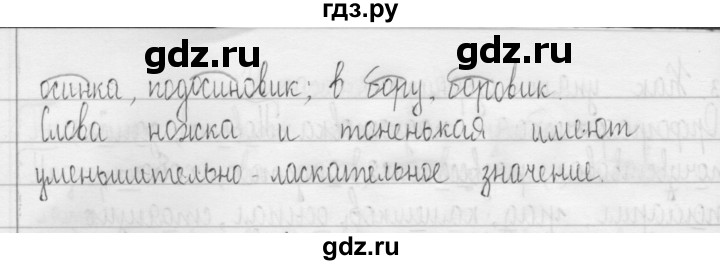 гдз.ру
gdz.ru gdz.ru
осинка, подосиновик; в бору, боровик.
Слова ножка и тоненькая имеют
уменьшительно-ласкательное значение.
gdz.ru gdz.ru
gdz.ru